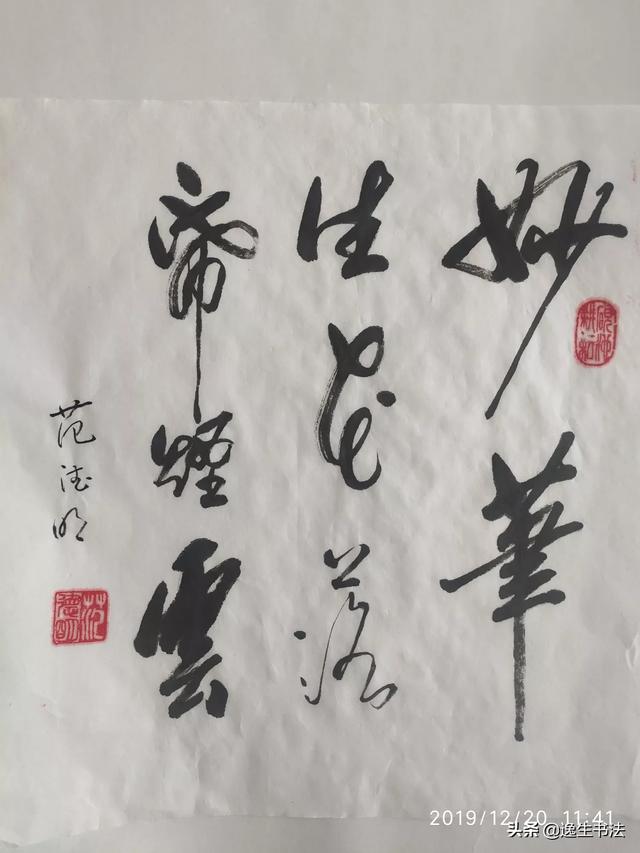 妙筆
生花落
帋煙雲
范德明
范德明
2019/12/20 11:41
头条@逸生书法